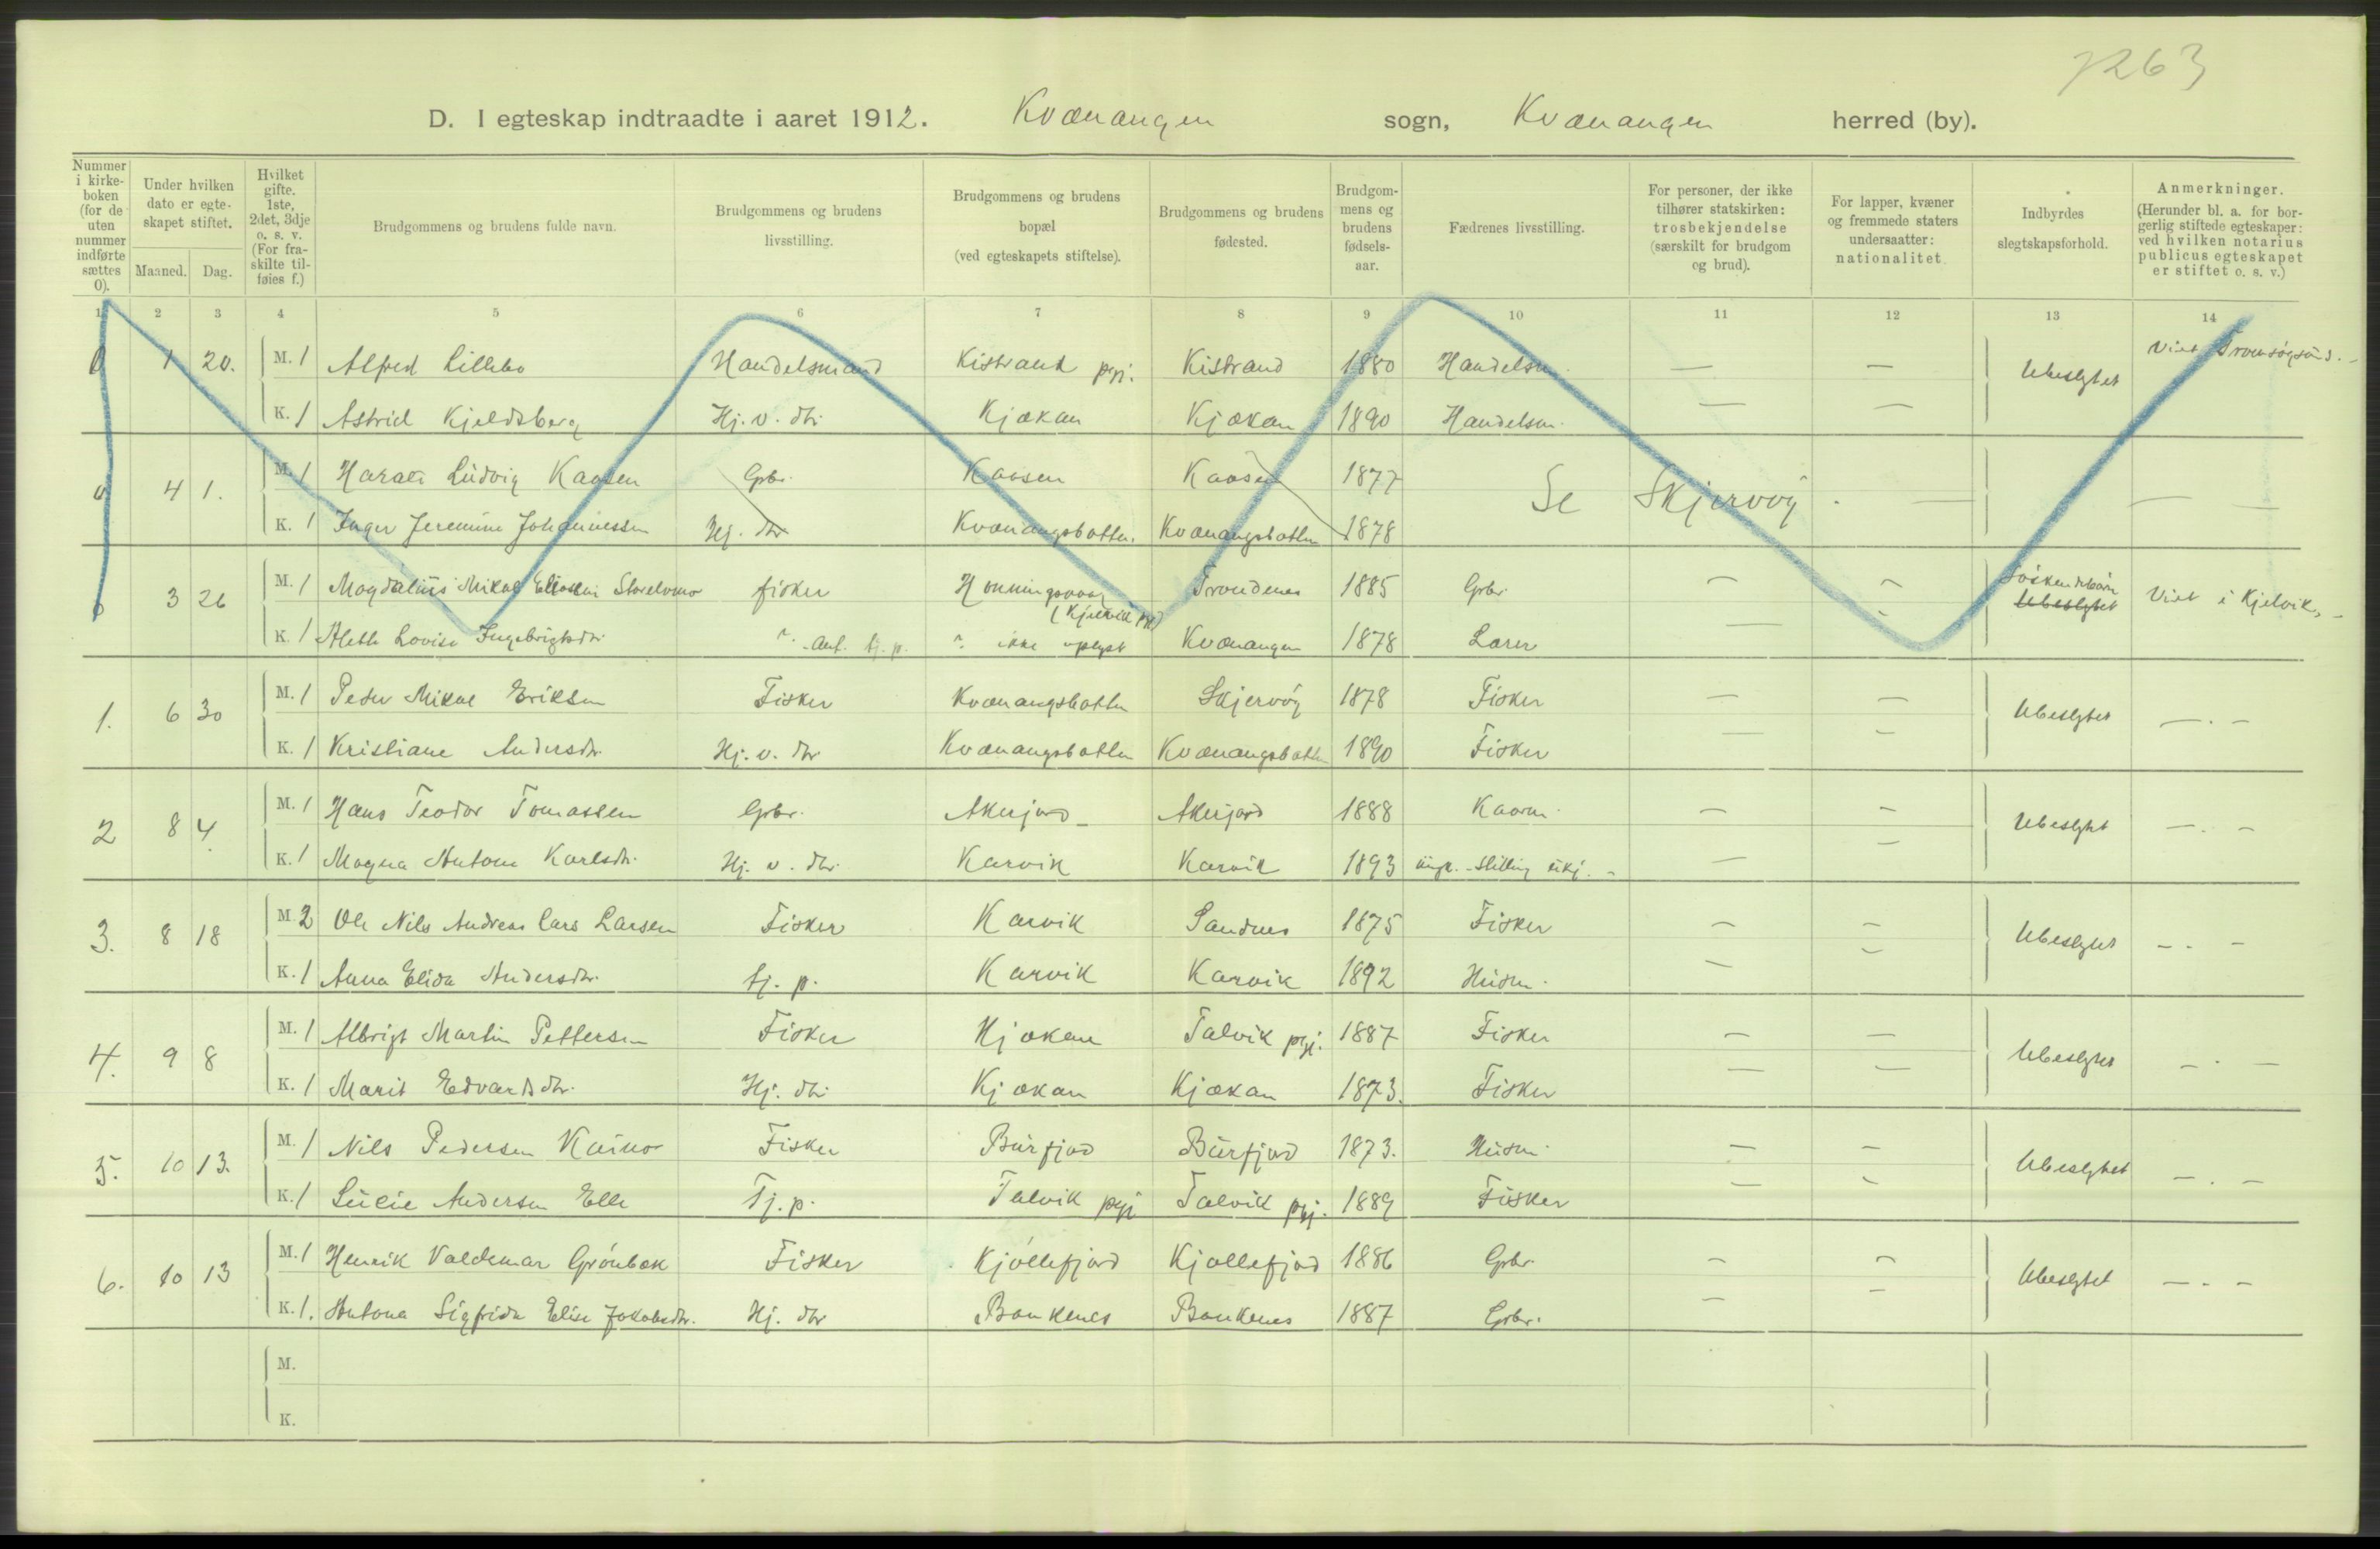 7263
D. I egteskap indtraadte i aaret 1912. Kvænangen sogn, Kvænangen herred (by).
Nummer i kirke-boken (for de uten nummer indførte sættes 0).
Under hvilken dato er egte-skapet stiftet.
Maaned. Dag.
Hvilket gifte. 1ste, 2det, 3dje o. s. v. (For fra-skilte til-føies f.)
Brudgommens og brudens fulde navn.
Brudgommens og brudens livsstilling.
Brudgommens og brudens bopæl (ved egteskapets stiftelse).
Brudgommens og brudens fødested.
Brudgom-mens og brudens fødsels-aar.
Fædrenes livsstilling.
For personer, der ikke tilhører statskirken: trosbekjendelse (særskilt for brudgom og brud).
For lapper, kvæner og fremmede staters undersaatter: nationalitet.
Indbyrdes slegtskapsforhold.
Anmerkninger. (Herunder bl. a. for bor-gerlig stiftede egteskaper: ved hvilken notarius publicus egteskapet er stiftet o. s. v.)
1 2 3 4 5 6 7 8 9 10 11 12 13 14
0 1 20. M. 1 Alfred Lillebo Handelsmand Kistrand pgj. Kistrand 1880 Handelsm. — — Ubeslegtet Viet Tromsøysund. -
K. 1 Astrid Kjeldsberg Hj. v. dtr. Kjækan Kjækan 1890 Handelsm. — —
0 4 1. M. 1 Harald Ludvig Kaasen Gbr. Kaasen Kaasen 1877 Se Skjervøy . — —
K. 1 Inger Jeremine Johannessen Hj. dtr Kvænangsbotten. Kvænangsbotten 1878
0 3 26 M. 1 Magdalius Mikal Storelvmo fisker Honningsvaag (Kjelvik pgj) Trondenes 1885 Gbr. — — Søskendebørn Ubeslegtet Viet i Kjelvik, -
K. 1 Aleth Lovise Ingebrigtsdtr. ". Ant. tj. p. " ikke oplyst Kvænangen 1878 Lærer — -
1. 6 30 M. 1 Peder Mikal Eriksen Fisker Kvænangsbotten Skjervøy 1878 Fisker — — Ubeslegtet — . -
K. 1 Kristiane Andersdtr. Hj. v. dtr Kvænangsbotten Kvænangsbotten 1890 Fisker — —
2 8 4. M. 1 Hans Teodor Tomassen Gbr. Akerjord - Akerjord 1888 Kaarm. — — Ubeslegtet — . -
K. 1 Magna Antone Karlsdtr. Hj. v. dtr. Karvik Karvik 1893 — —
3. 8 18 M. 2 Ole Nils Andreas Lars Larsen Fisker Karvik Sandnes 1875 Fisker — — Ubeslegtet - . -
K. 1 Anna Elida Andersdtr. tj. p. Karvik Karvik 1892 Husm. — —
4. 9 8 M. 1 Albrigt Martin Pettersen Fisker Kjækan Talvik pgj. 1887 Fisker — — Ubeslegtet - . —
K. 1 Marit Edvardsdtr. Hj. dtr. Kjækan Kjækan 1873. Fisker — —
5. 10 13. M. 1 Nils Pedersen Kaino Fisker Burfjord Burfjord 1873. Husm. — — Ubeslegtet — . -
K. 1 Lucie Andersen Elle Tj. p. Talvik pgj Talvik pgj. 1889 Fisker — —
6. 10 13 M. 1 Henrik Valdemar Grønbæk Fisker Kjøllefjord Kjøllefjord 1886 Gbr. — — Ubeslegtet — . -
K. 1. Antona Sigfrida Elise Jakobsdtr. Hj. dtr Bankenes Bankenes 1887 Gbr. — —
M.
K.